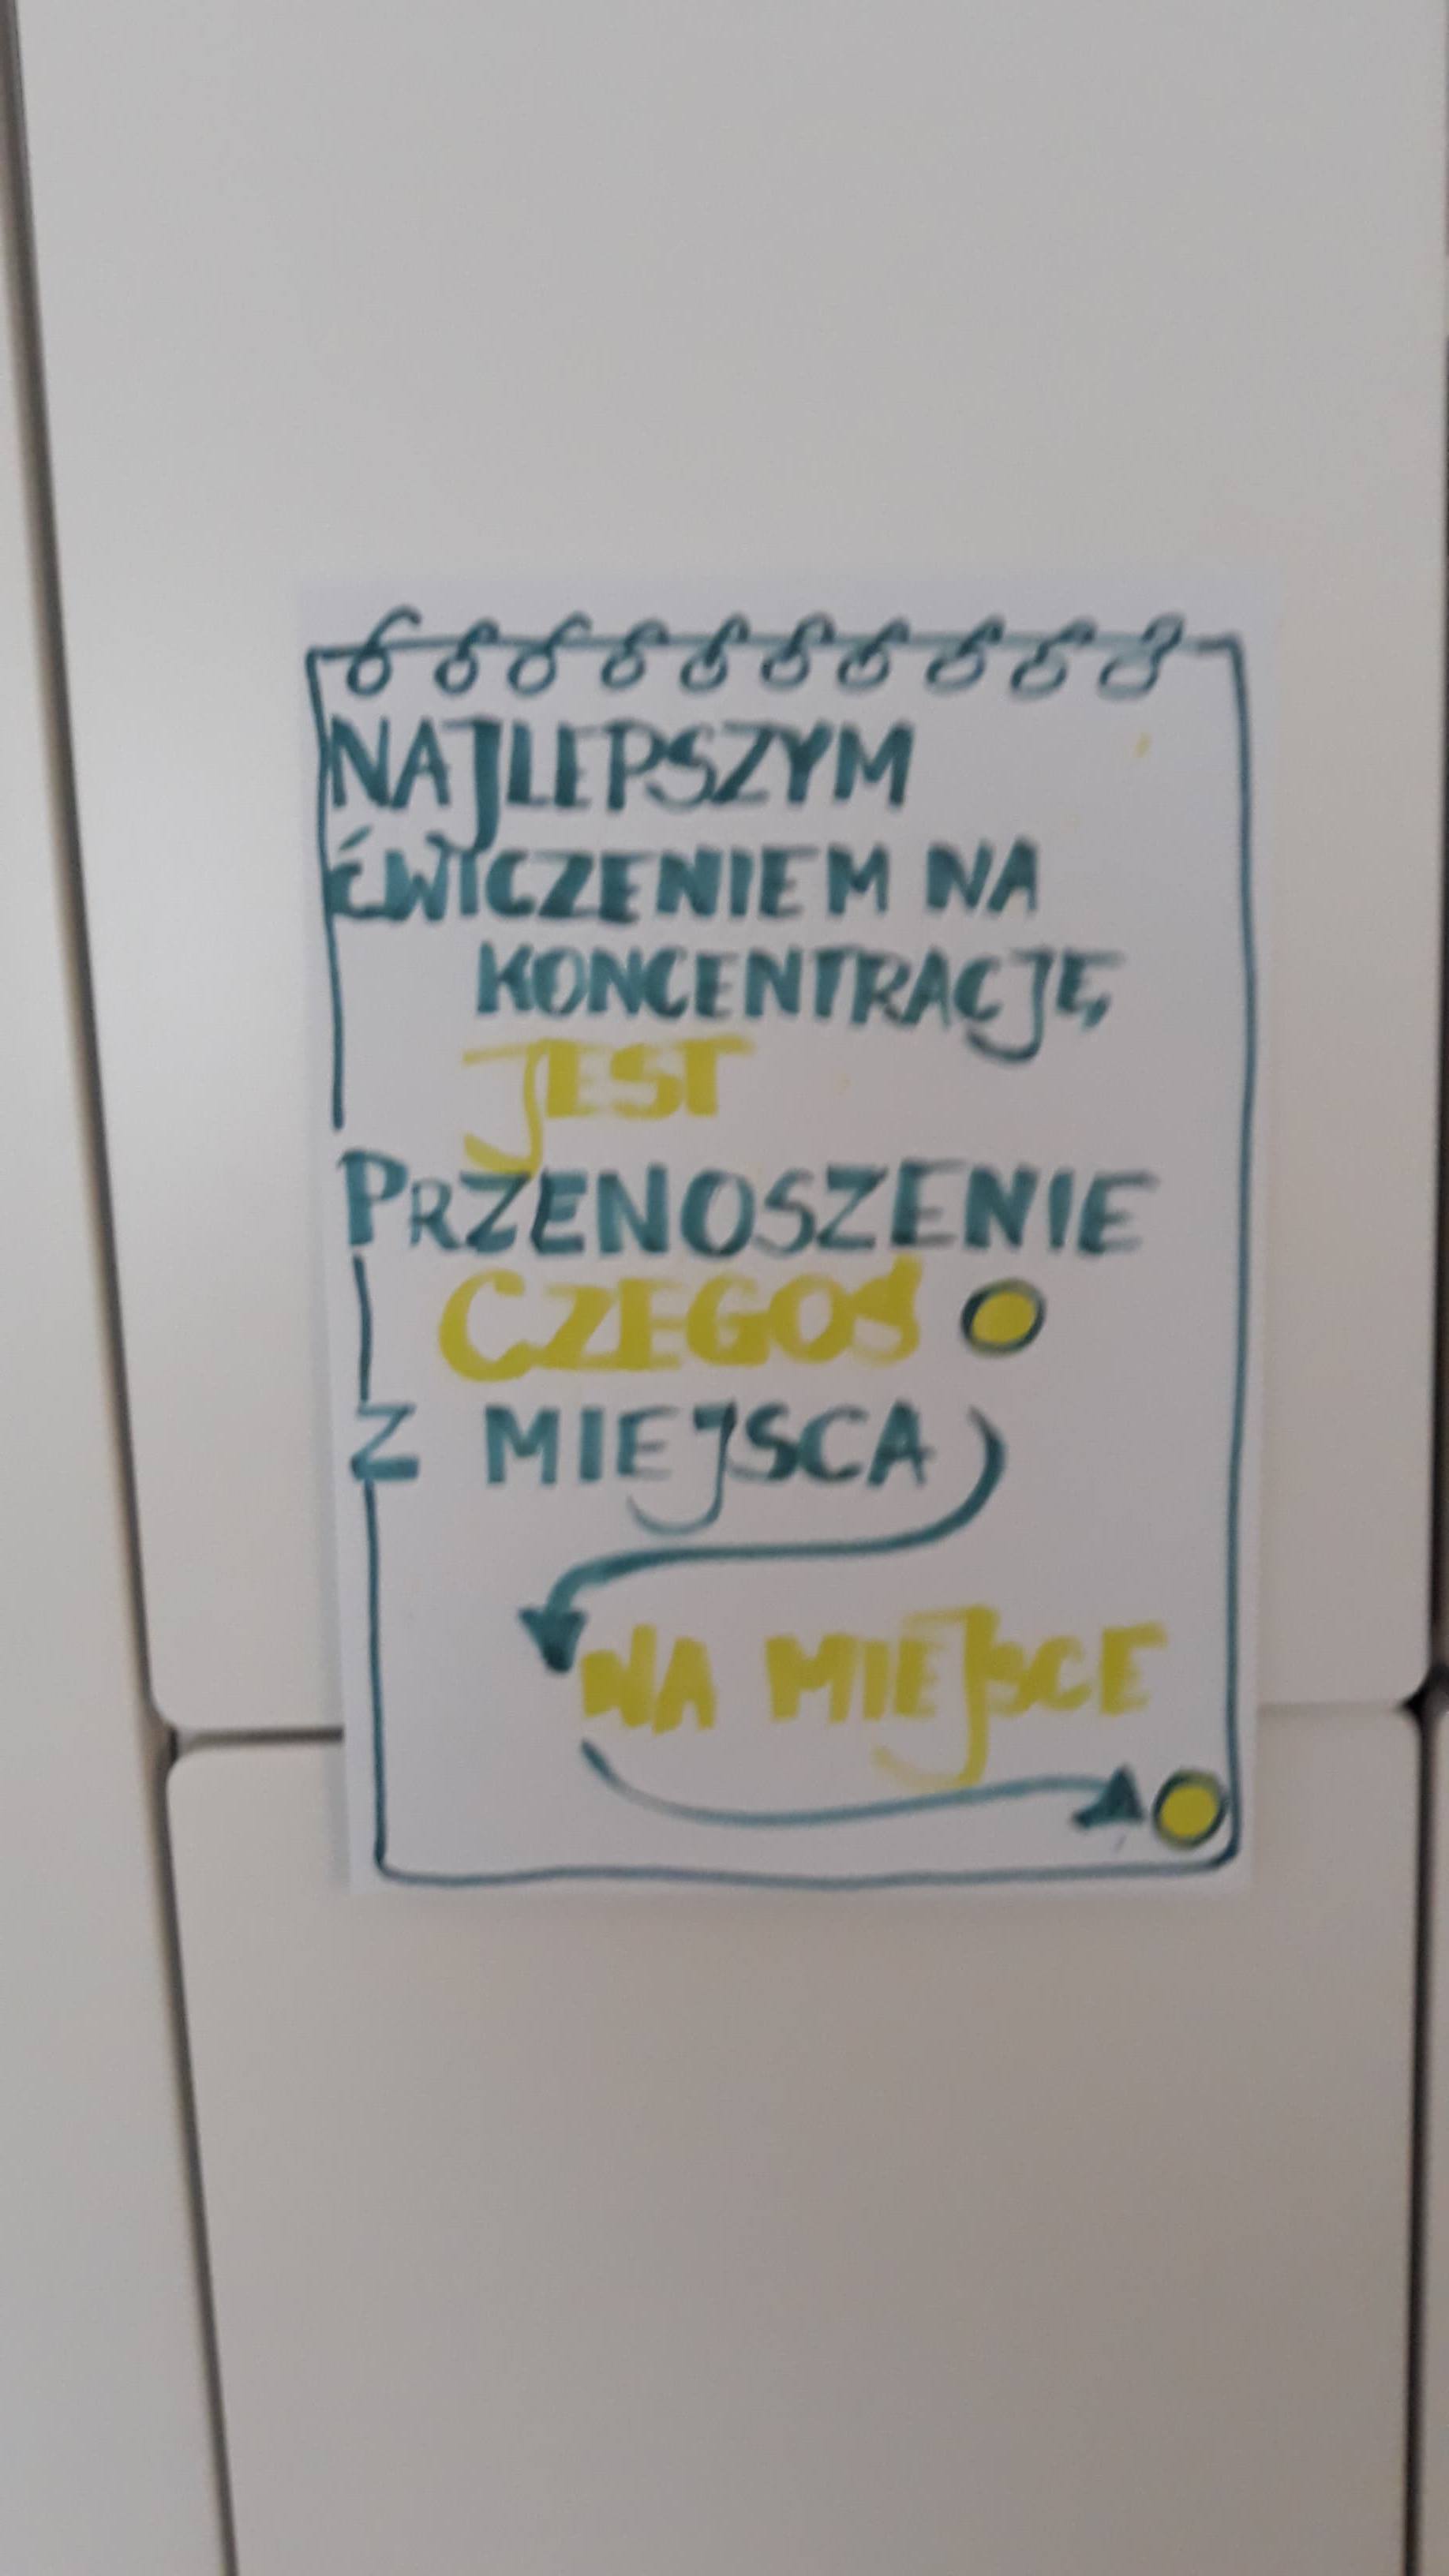 NAJLEPSZYM
ĆWICZENIEM NA
KONCENTRACJĘ
JEST
PRZENOSZENIE
CZEGOŚ
Z MIEJSCA
NA MIEJSCE